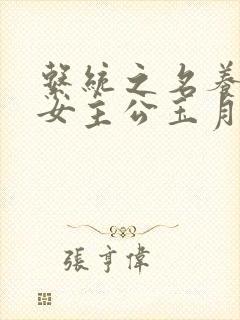 繫統之名養
女主公玉月
張亨偉